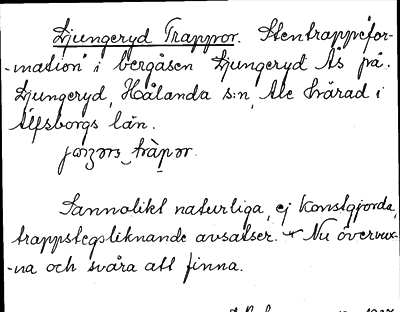 Ljungeryd Trappor. Stentrappefor-
-mation i bergåsen Ljungeryd Ås på
Ljungeryd, Hålanda s:n, Ale härad i
Älfsborgs län.
Sannolikt naturliga, ej konstgjorda,
trappstegsliknande avsatser. Nu övervux-
-na och svåra att finna.